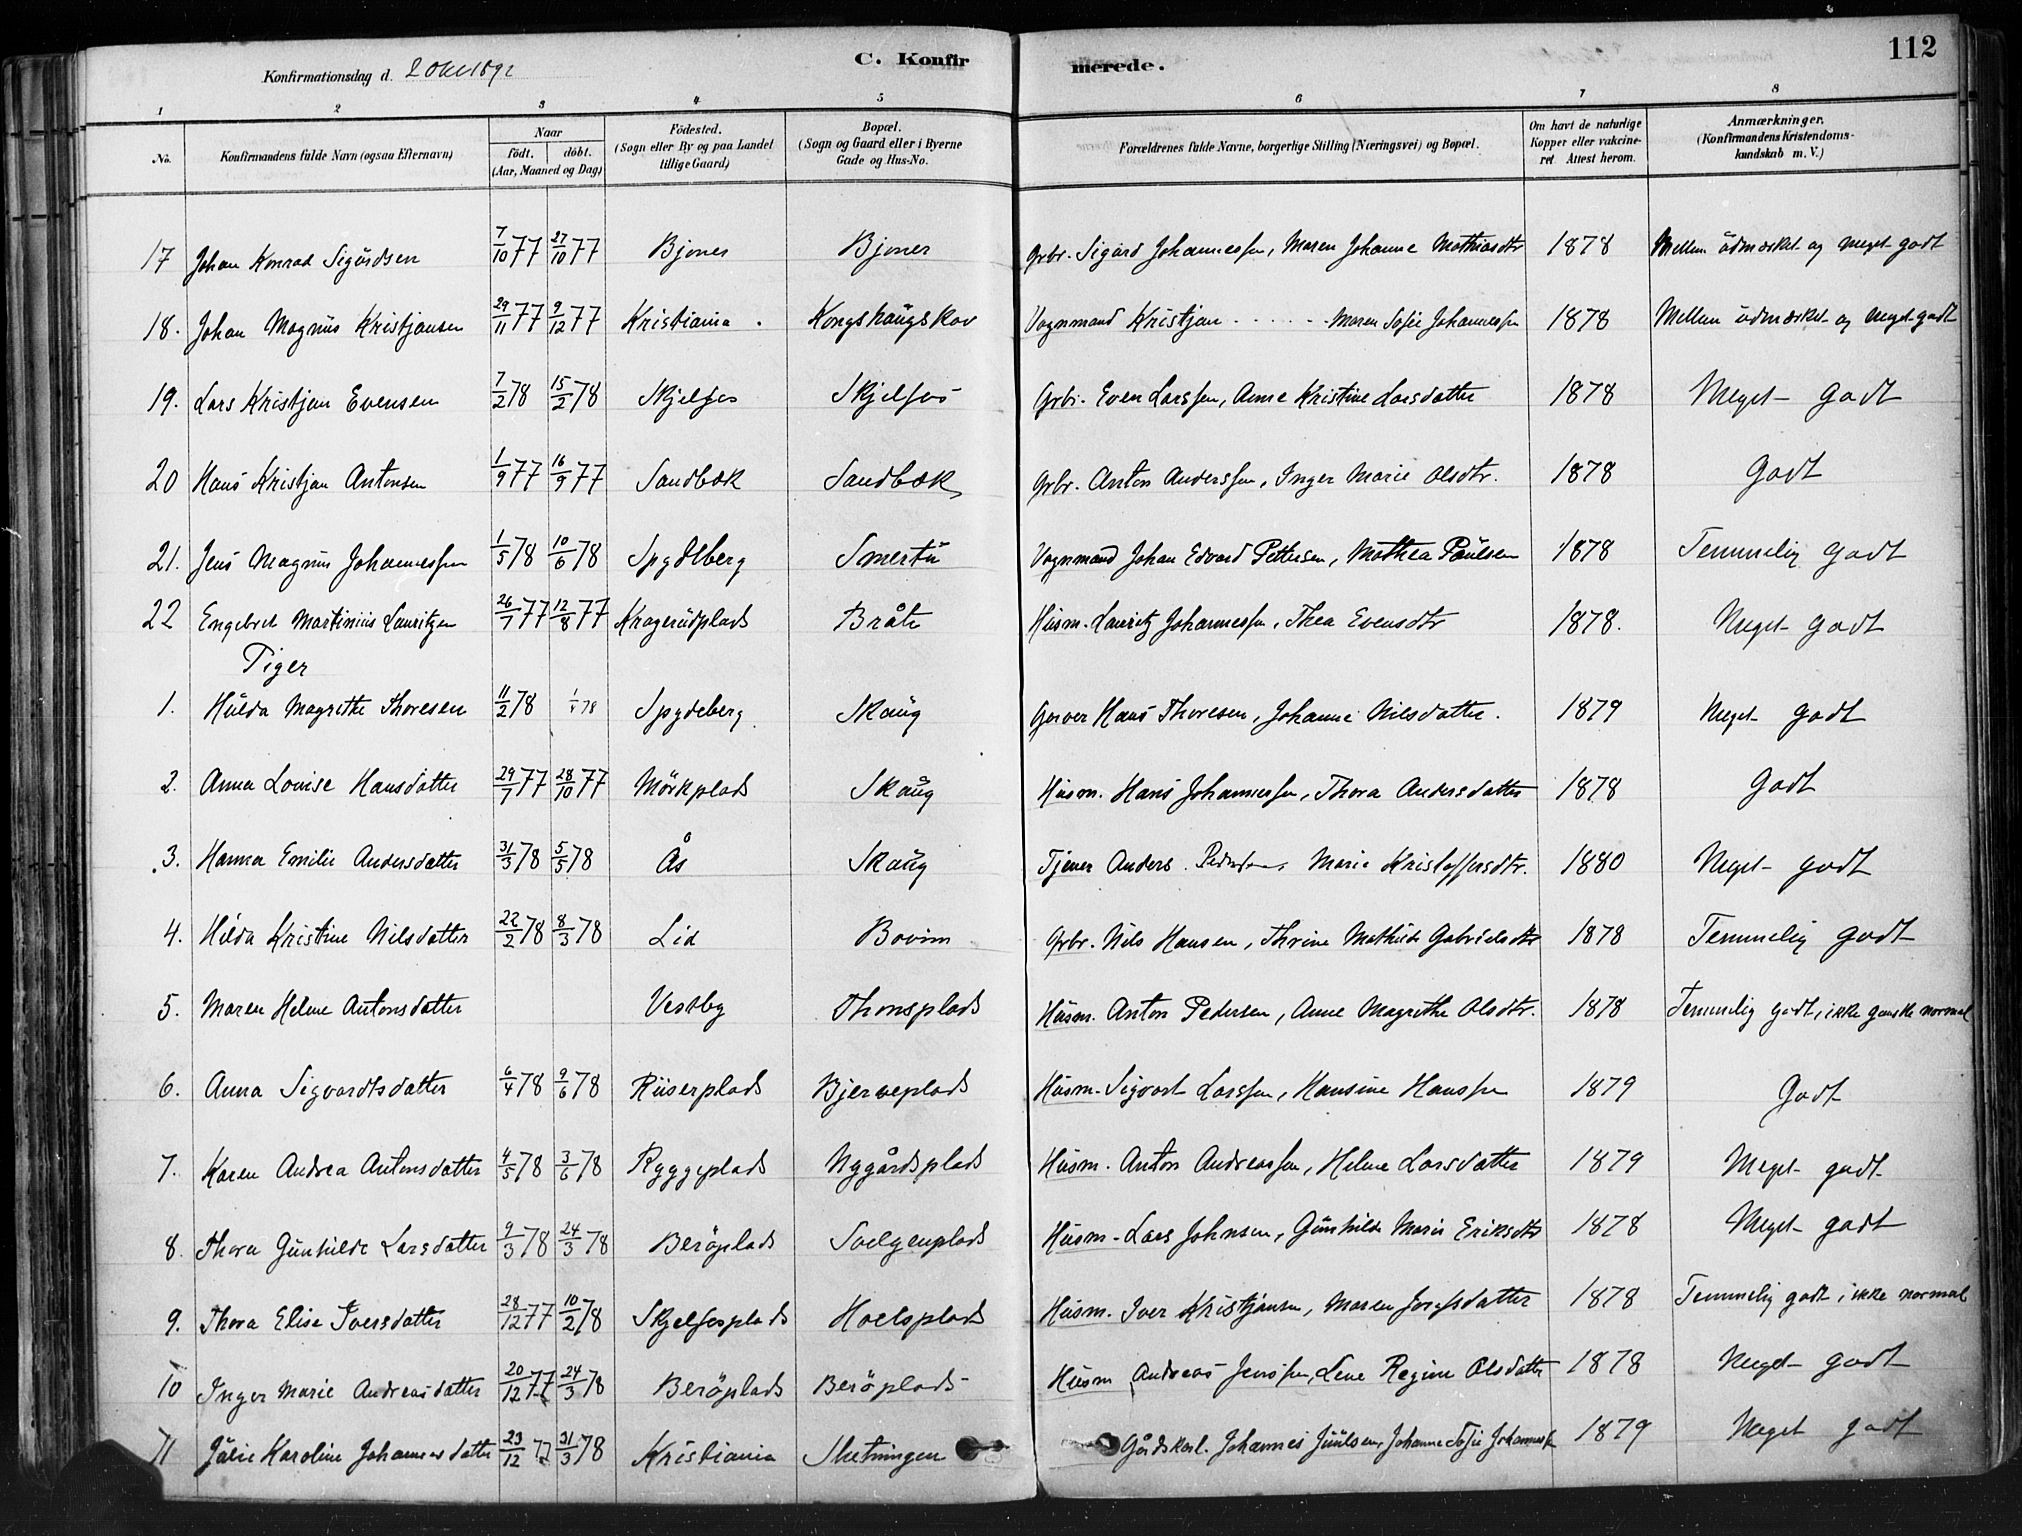 112
C. Konfirmerede.
Konfirmationsdag d. 2 Okt 1892
1 2 3 4 5 6 7 8
No. Konfirmandens fulde Navn (ogsaa Efternavn) Naar født. døbt. (Aar, Maaned og Dag) Fødested. (Sogn eller By og paa Landet tillige Gaard) Bopæl. (Sogn og Gaard eller i Byerne Gade og Hus-No. Forældrenes fulde Navne, borgerlige Stilling (Næringsvei) og Bopæl. Om havt de naturlige Kopper eller vakcineret. Attest herom. Anmærkninger. (Konfirmandens Kristendomskundskab m. V.)
17 Johan Konrad Sigurdsen 7/10 77 27/10 77 Bjoner Bjoner Grbr. Sigurd Johannessen, Maren Johanne Mathiasdtr 1878 Mellem udmærket og meget godt
18. Johan Magnus Kristjansen 29/11 77 9/12 77 Kristiania. Kongshaugskov Vognmand Kristjan ----- Maren Sofie Johannessen 1878 Mellem udmærket og meget godt
19. Lars Kristjan Evensen 7/2 78 15/2 78 Skjelfos Skjelfos Grbr. Even Larssen, Anne Kristine Larsdatter 1878 Meget godt
20 Hans Kristjan Antonsen 1/9 77 16/9 77 Sandbæk Sandbæk Grbr. Anton Anderssen, Inger Marie Olsdtr. 1878 Godt
21. Jens Magnus Johannessen 1/5 78 10/6 78 Spydeberg Smertu Vognmand Johan Edvard Pettersen, Mathea Paulsen 1878 Temmelig godt
22 Engebret Martinius Lauritzen 26/7 77 12/8 77 Kragerudplads Bråte Husm. Lauritz Johannessen, Thea Evensdtr 1878. Meget godt
Piger
1. Hulda Magrethe Thoresen 11/2 78 78 Spydeberg Skaug Garver Hans Thoresen, Johanne Nilsdatter. 1879 Meget godt
2. Anna Louise Hansdatter 29/7 77 28/10 77 Mörkplads Skaug Husm. Hans Johannessen, Thora Andersdatter 1878 Godt
3. Hanna Emilie Andersdatter 31/3 78 5/5 78 Ås Skaug Tjener Anders Pedersen, Marie Kristoffersdtr. 1880 Meget godt
4. Hilda Kristine Nilsdatter 22/2 78 8/3 78 Lid Bovim Grbr. Nils Hansen, Thrine Mathilde Gabrielsdtr 1878 Temmelig godt
5. Maren Helene Antonsdatter Vestby Thonsplads Husm. Anton Pedersen, Anne Magrethe Olsdtr. 1878 Temmelig godt, ikke ganske normal
6. Anna Sigvardtsdatter 6/4 78 9/6 78 Riiserplads Bjerveplads Husm. Sigvart Larssen, Hansine Hanssen 1879 Godt
7. Karen Andrea Antonsdatter 4/5 78 3/6 78 Ryggeplads Nygårdsplads Husm. Anton Andreassen, Helene Larsdatter 1879 Meget godt
8. Thora Gunhilde Larsdatter 9/3 78 24/3 78 Beröplads Solgenplads Husm. Lars Johnsen, Gunhilde Marie Eriksdtr 1878 Meget godt
9. Thora Elise Iversdatter 28/12 77 10/2 78 Skjelfosplads Hoelsplads Husm. Iver Kristjansen, Maren Josefsdatter 1878 Temmelig godt, ikke normal
10 Inger Marie Andreasdatter 20/12 77 24/3 78 Beröplads Beröplads Husm Andreas Jenssen, Lene Regine Olsdatter 1878 Meget godt
11 Julie Karoline Johannesdatter 23/12 77 31/3 78 Kristiania Sletningen Gårdskarl. Johannes Juulsen, Johanne Sofie Johannessen 1879 Meget godt